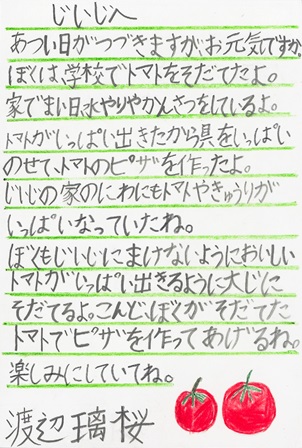 じいじへ
あつい日がつづきますが、お元気ですか。
ぼくは、学校でトマトをそだてたよ。
家でまい日、水やりやかんさつをしているよ。
トマトがいっぱい出きたから具をいっぱい
のせて、トマトのピザを作ったよ。
じいじの家のにわにもトマトやきゅうりが
いっぱいなっていたね。
ぼくもじいじにまけないようにおいしい
トマトがいっぱい出きるように大じに
そだてるよ。こんど、ぼくがそだてた
トマトでピザを作ってあげるね。
楽しみにしていてね。
渡辺璃桜